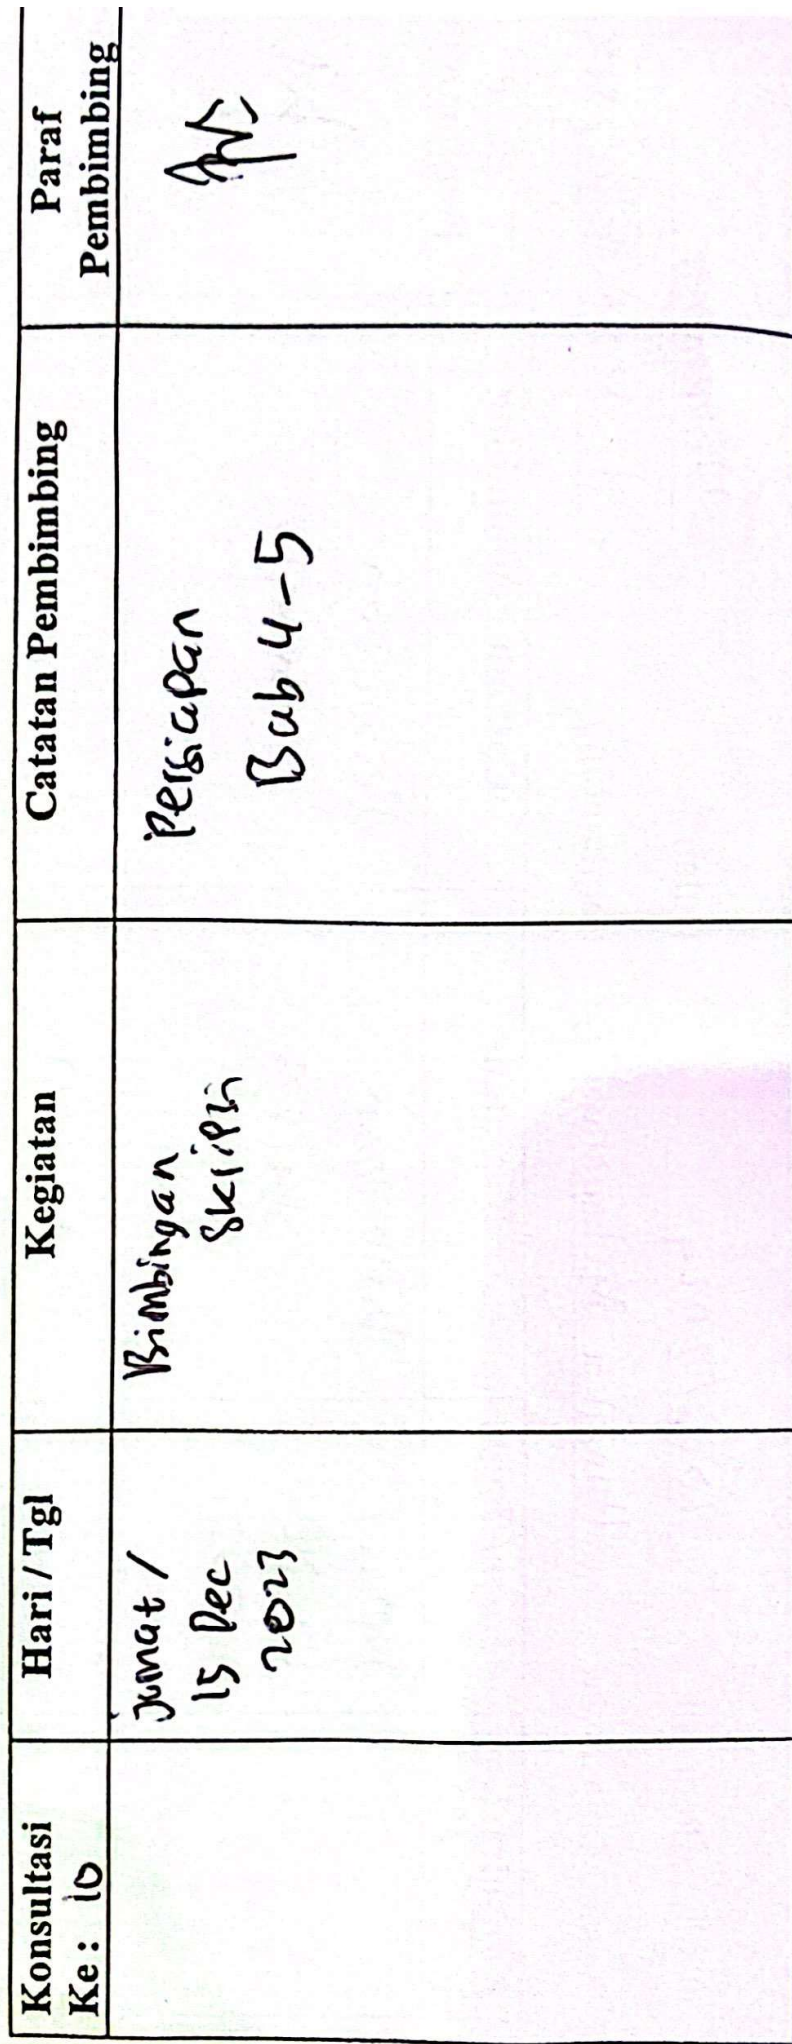 Konsultasi
Ke : 10
Hari / Tgl
Kegiatan
Catatan Pembimbing
Paraf
Pembimbing
jumat /
15 Dec
2023
Bimbingan
Skripsi
Persiapan
Bab 4-5